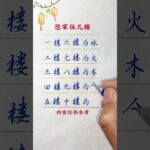 您家住几楼
一楼六楼为水
二楼七楼为火
三楼八楼为木
四楼九楼为人
五楼十楼为
内容仅供参考